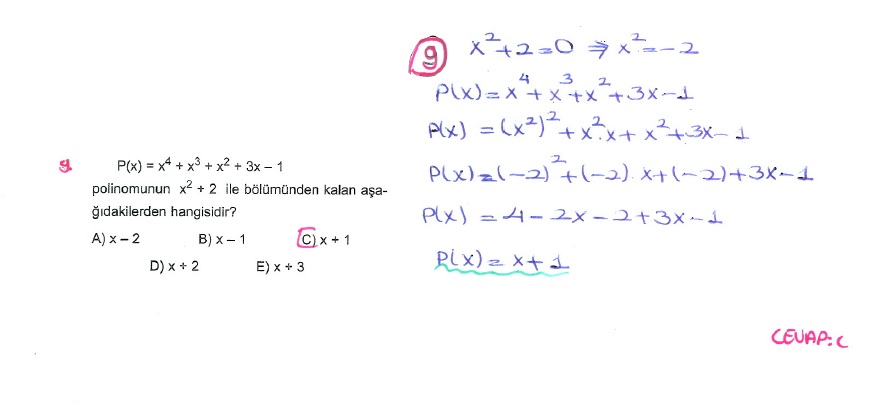 9 P(x) = x⁴ + x³ + x² + 3x – 1
polinomunun x² + 2 ile bölümünden kalan aşa-
ğıdakilerden hangisidir?
A) x – 2 B) x – 1 C) x + 1
D) x + 2 E) x + 3
9 x²+2=0 ⇒ x²=-2
P(x)=x⁴+x³+x²+3x-1
P(x) = (x²)²+x².x+x²+3x-1
P(x)=(-2)²+(-2).x+(-2)+3x-1
P(x) = 4-2x-2+3x-1
P(x)=x+1
CEVAP: C